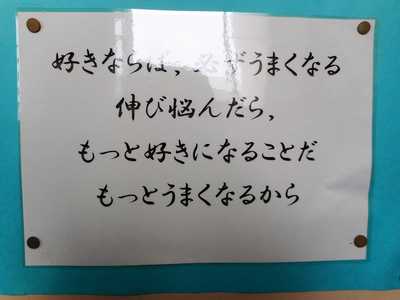 好きならば，必ずうまくなる
伸び悩んだら，
もっと好きになることだ
もっとうまくなるから